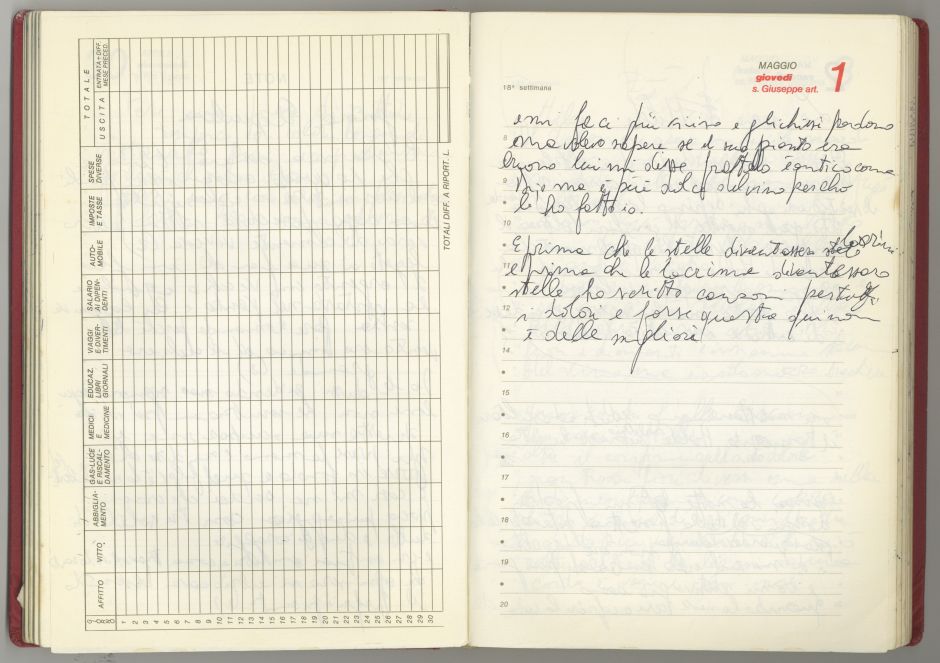 TOTALE
ENTRATA + DIFF. MESE PRECED.
USCITA
SPESE DIVERSE
IMPOSTE E TASSE
AUTO-MOBILE
SALARIO AI DIPENDENTI
VIAGGI E DIVERTIMENTI
EDUCAZ. LIBRI GIORNALI
MEDICI E MEDICINE
GAS-LUCE E RISCALDAMENTO
ABBIGLIAMENTO
VITTO
AFFITTO
GIORNO
1 2 3 4 5 6 7 8 9 10 11 12 13 14 15 16 17 18 19 20 21 22 23 24 25 26 27 28 29 30
TOTALI DIFF. A RIPORT. L.
MAGGIO
giovedì
s. Giuseppe art.
1
18ª settimana
e mi feci più vicino e gli chiesi perdono
ma volevo sapere se il suo pianto era
buono lui mi disse fratello è antico come
Dio ma è più dolce del vino perché
l'ho fatto io.
E prima che le stelle diventassero lacrime
e prima che le lacrime diventassero
stelle ho scritto canzoni per tutti
i dolori e forse questa qui non
è delle migliori
8
9
10
11
12
14
15
16
17
18
19
20